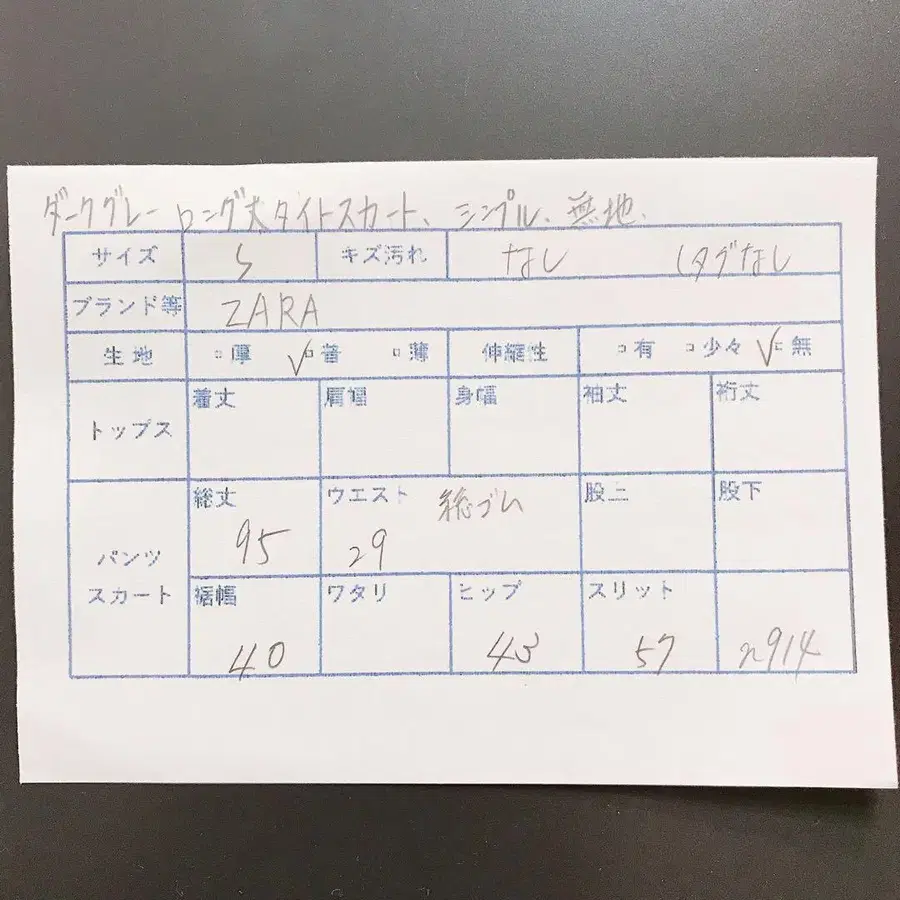 ダークグレー ロング丈タイトスカート、シンプル、無地、
サイズ S キズ汚れ なし (タグなし
ブランド等 ZARA
生地 □厚 ✓□普 □薄 伸縮性 □有 □少々 ✓□無
トップス 着丈 肩幅 身幅 袖丈 裄丈
パンツ スカート
総丈 95 ウエスト 総ゴム 29 股上 股下
裾幅 40 ワタリ ヒップ 43 スリット 57 n914